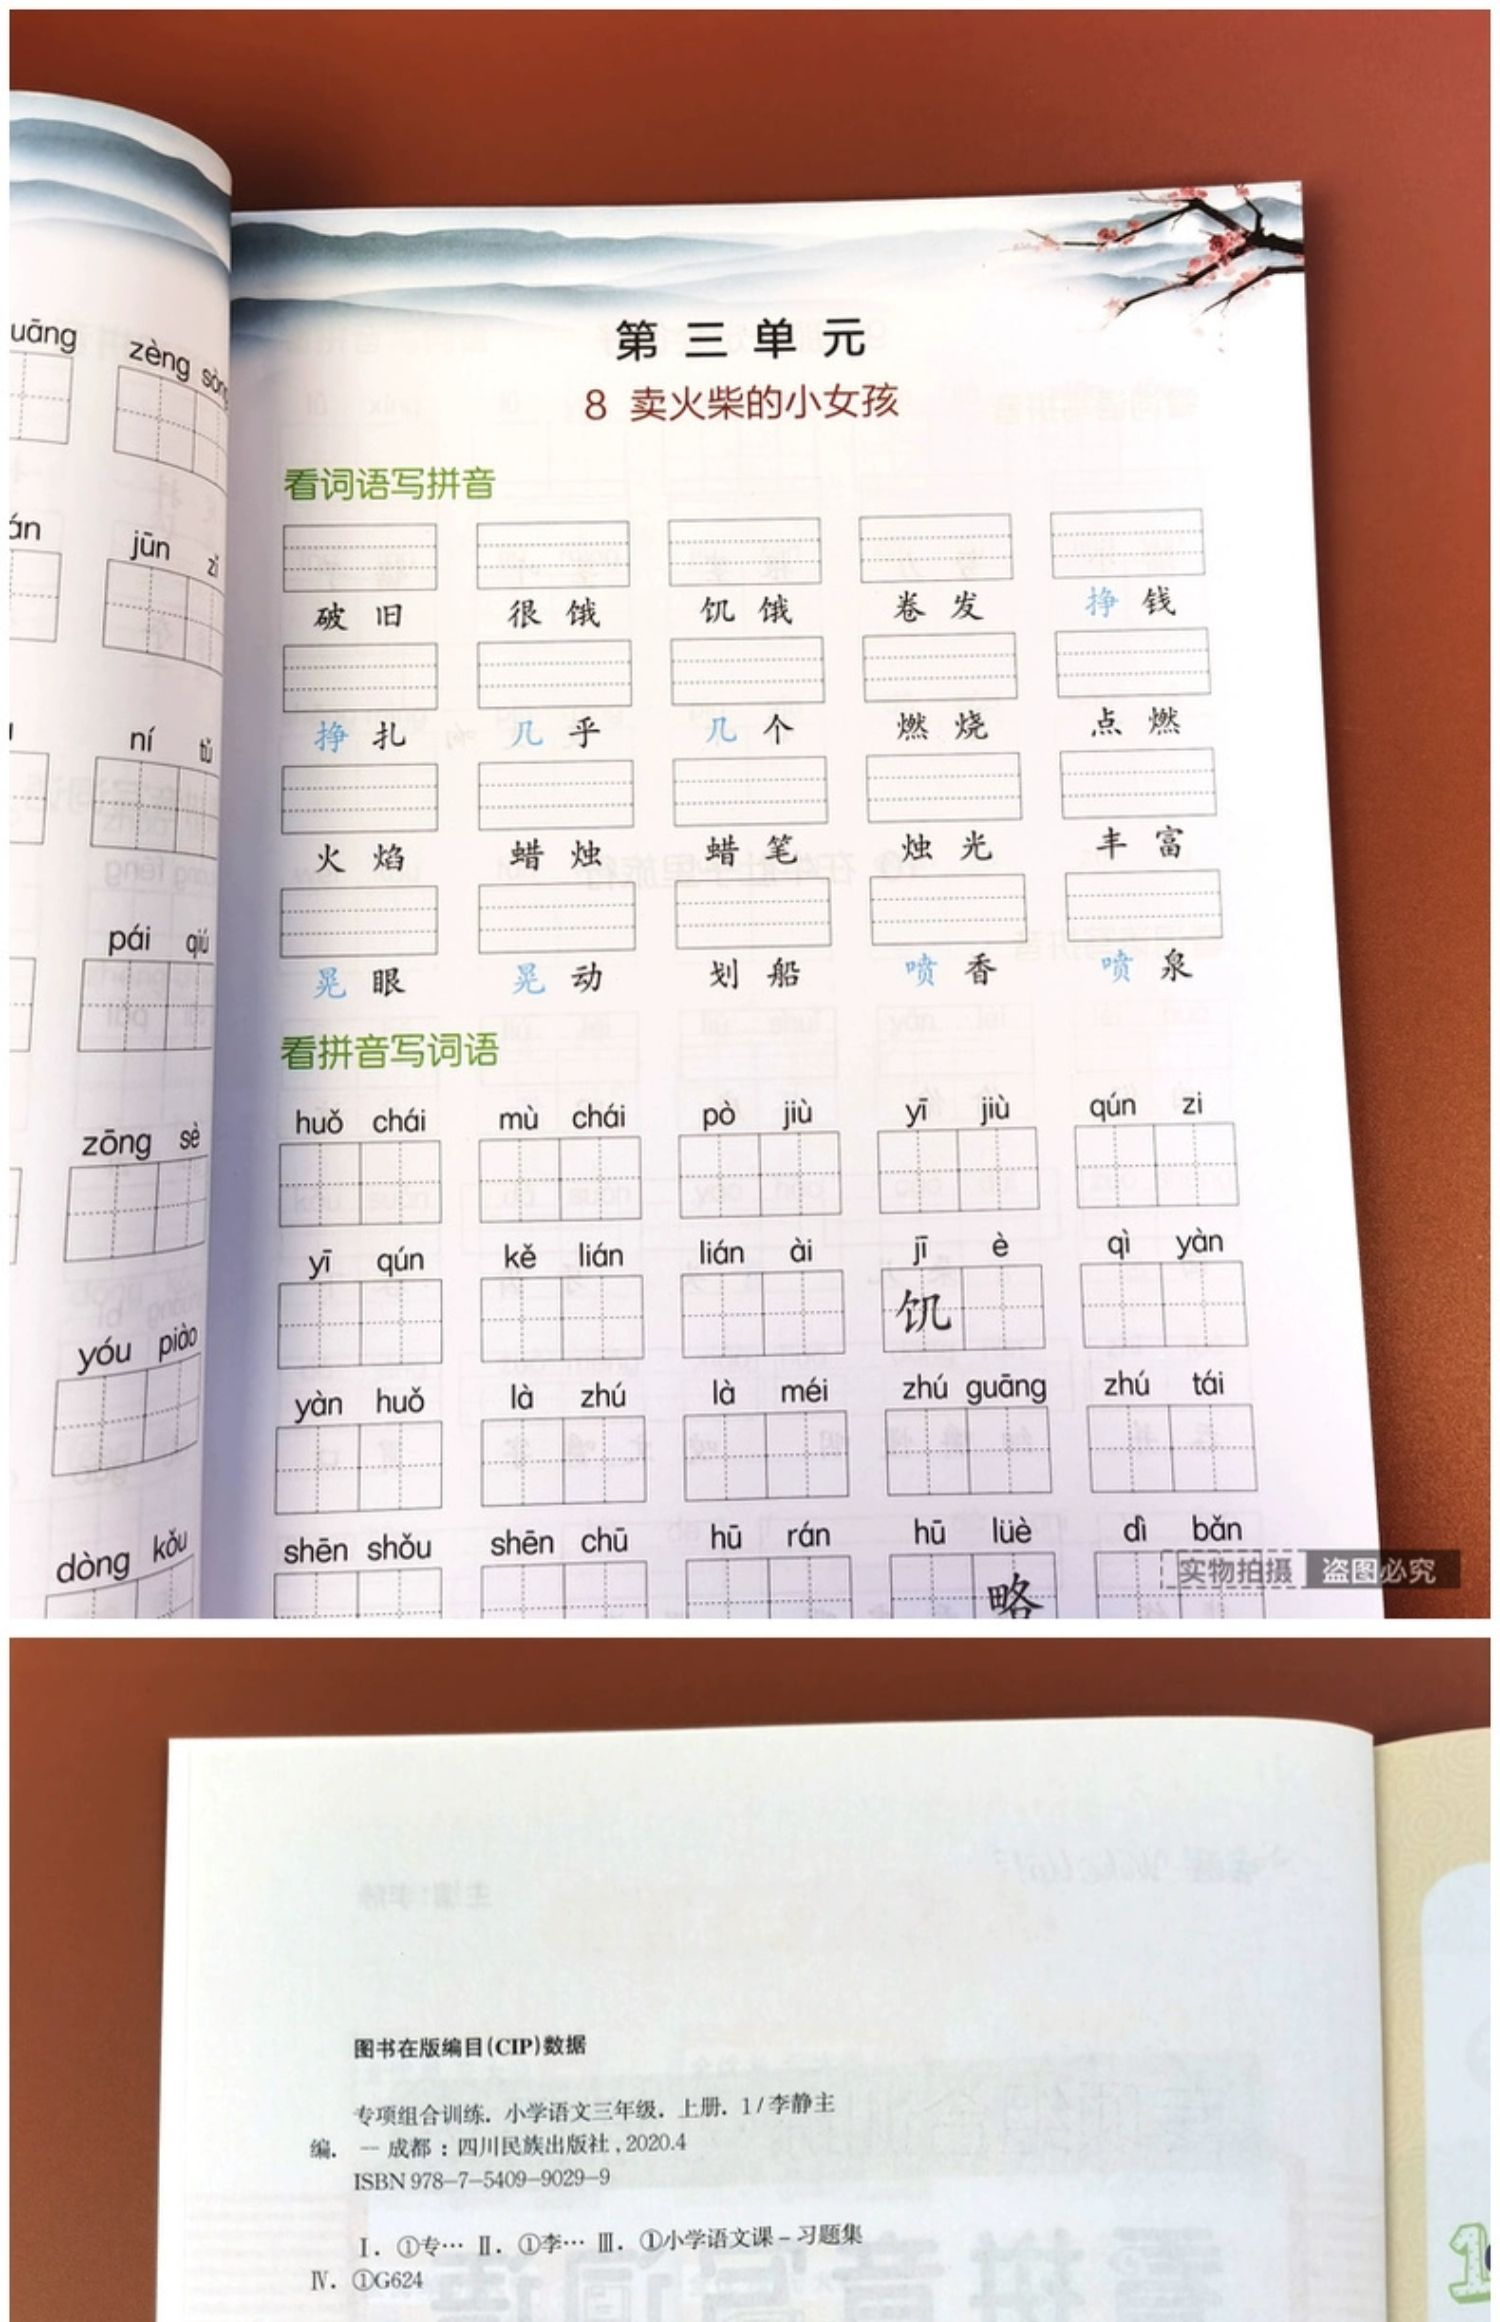 uāng
zèng sòng
án
jūn zǐ
ní tǔ
pái qiú
zōng sè
yóu piào
dòng kǒu
第三单元
8 卖火柴的小女孩
看词语写拼音
破旧 很饿 饥饿 卷发 挣钱
挣扎 几乎 几个 燃烧 点燃
火焰 蜡烛 蜡笔 烛光 丰富
晃眼 晃动 划船 喷香 喷泉
看拼音写词语
huǒ chái mù chái pò jiù yī jiù qún zi
yī qún kě lián lián ài jī è qì yàn
饥
yàn huǒ là zhú là méi zhú guāng zhú tái
shēn shǒu shēn chū hū rán hū lüè dì bǎn
略
实物拍摄 盗图必究
图书在版编目(CIP)数据
专项组合训练. 小学语文三年级. 上册. 1 / 李静主
编. — 成都 : 四川民族出版社 , 2020.4
ISBN 978-7-5409-9029-9
Ⅰ. ①专… Ⅱ. ①李… Ⅲ. ①小学语文课 - 习题集
Ⅳ. ①G624